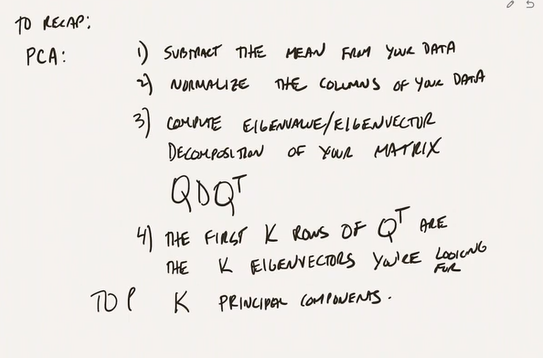 TO RECAP:
PCA: 1) SUBTRACT THE MEAN FROM YOUR DATA
2) NORMALIZE THE COLUMNS OF YOUR DATA
3) COMPUTE EIGENVALUE/EIGENVECTOR
DECOMPOSITION OF YOUR MATRIX
QDQᵀ
4) THE FIRST K ROWS OF Qᵀ ARE
THE K EIGENVECTORS YOU'RE LOOKING
FOR
TOP K PRINCIPAL COMPONENTS.